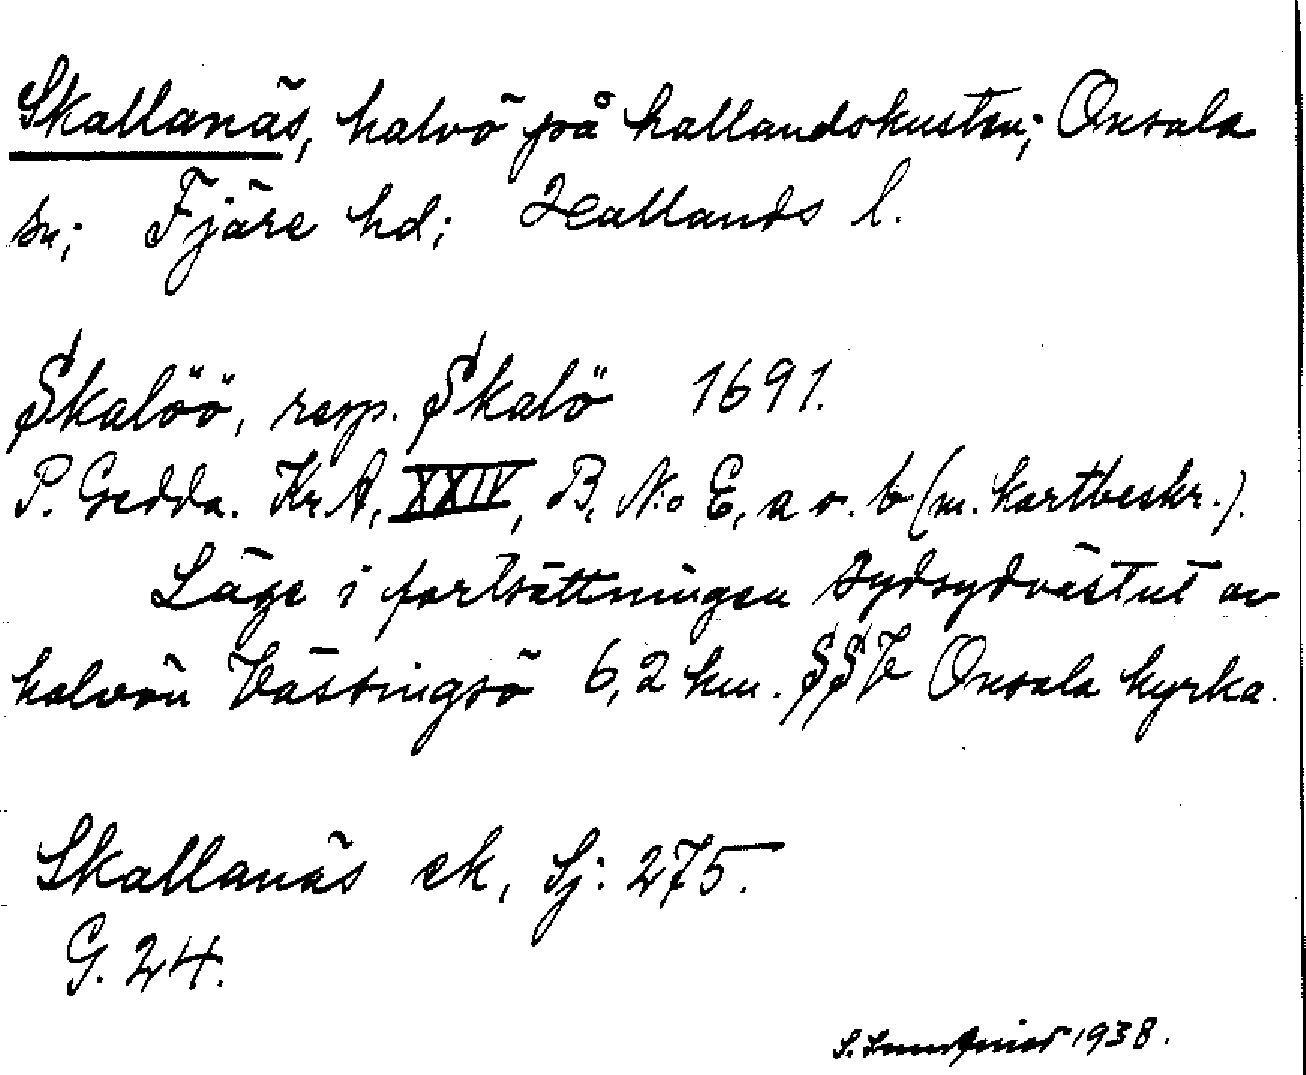 Skallanäs, halvö på hallandskusten; Onsala
sn; Fjäre hd; Hallands l.
Skalöö, resp. Skalö 1691.
P. Gedda. Kr. A, XXIV, B, N:o E, a o. b (m. kartbeskr.).
Läge i fortsättningen sydsydvästut av
halvön Västingsö 6,2 km. SSV Onsala kyrka.
Skallanäs ek, Sj: 275.
G. 24.
S. 1938.